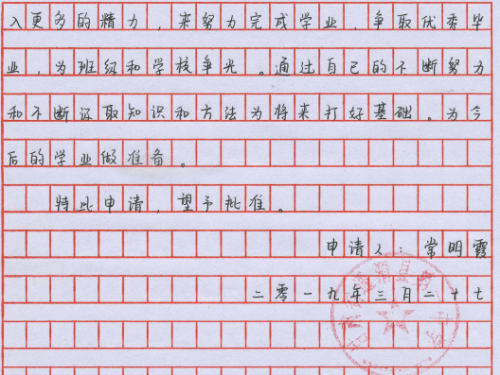 入更多的精力，来努力完成学业，争取优秀毕
业，为班级和学校争光。通过自己的不断努力
和不断汲取知识和方法为将来打好基础。为今
后的学业做准备。
特此申请，望予批准。
申请人：常明霞
二零一九年三月二十七